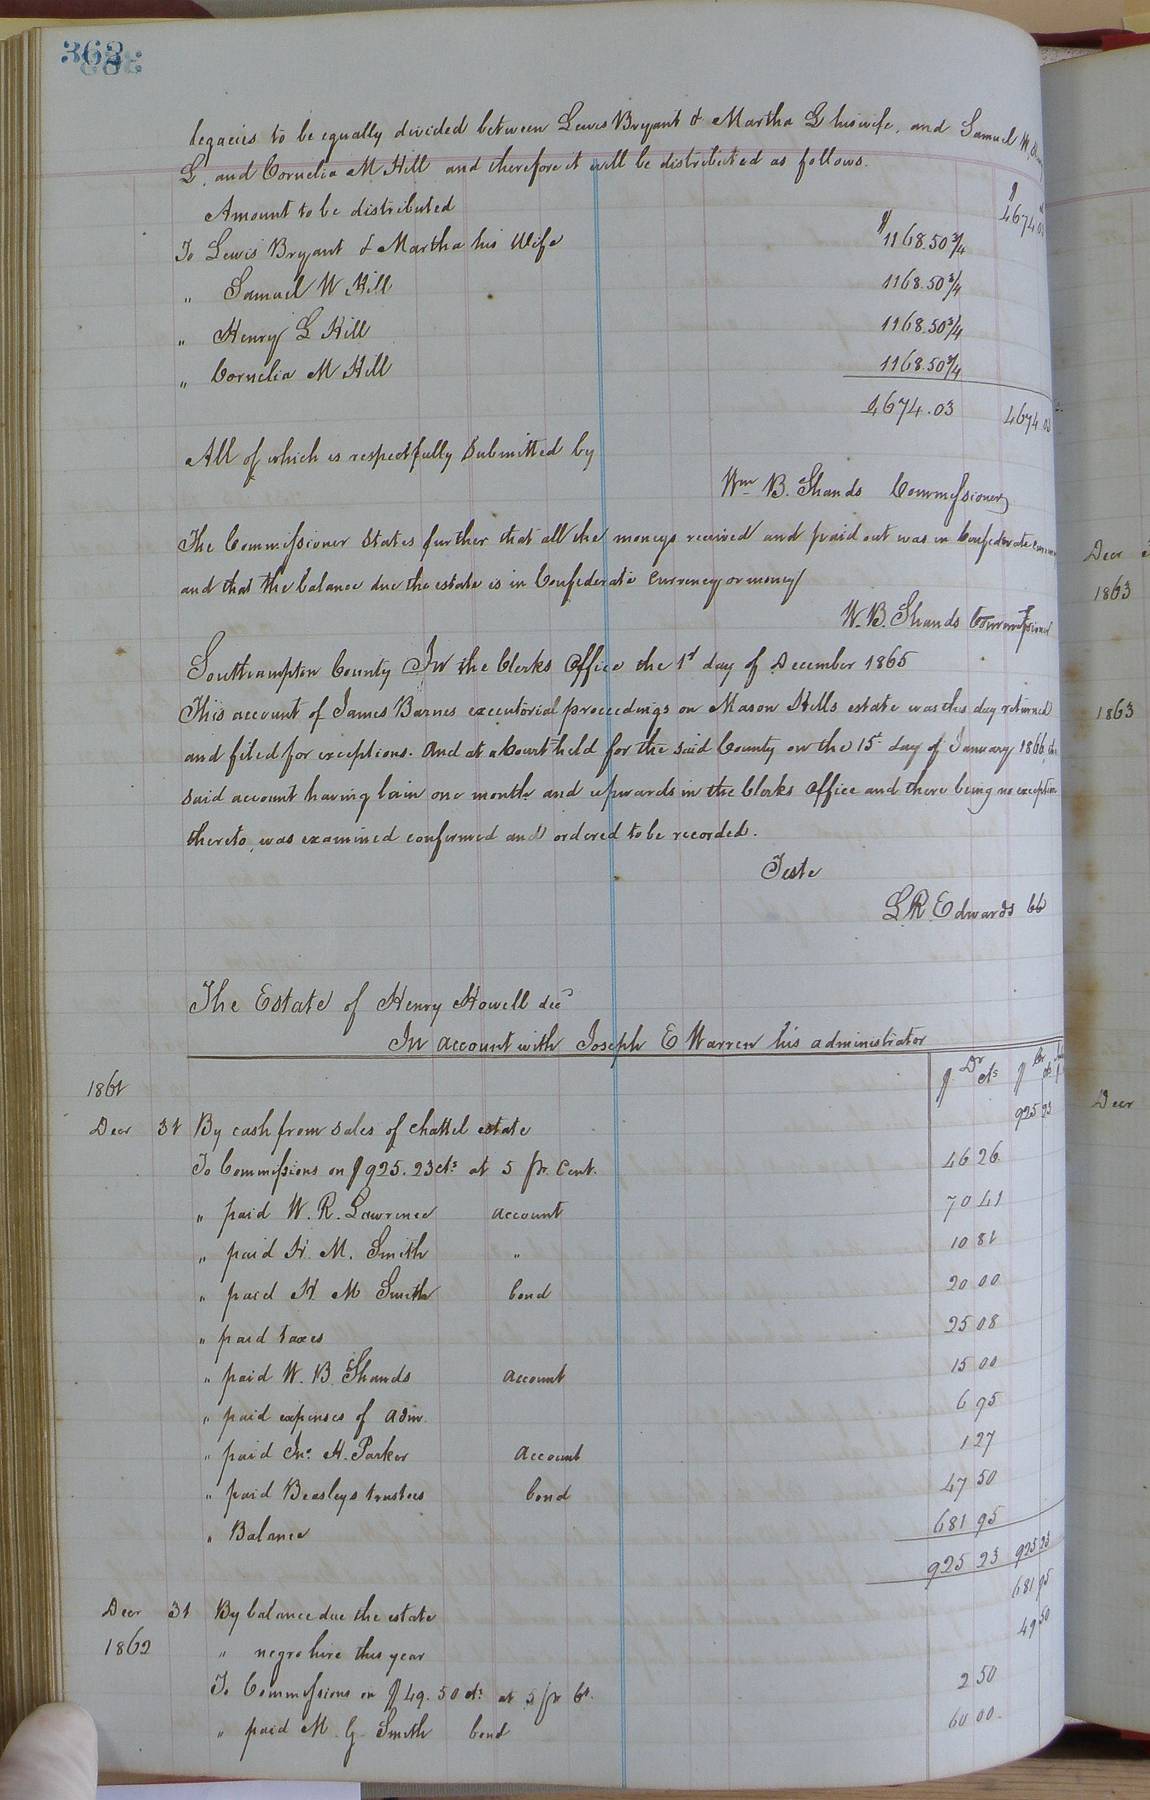 362
legacies to be equally divided between Lewis Bryant & Martha G his wife, and Samuel W,
G. and Cornelia M Hill and therefore it will be distributed as follows.
Amount to be distributed $4674.03
To Lewis Bryant & Martha his Wife $1168.50 3/4
" Samuel W Hill 1168.50 3/4
" Henry G Hill 1168.50 3/4
" Cornelia M Hill 1168.50 3/4
4674.03 4674.03
All of which is respectfully Submitted by
Wm B. Shands Commissioner
The Commissioner States further that all the moneys received and paid out was in Confederate
and that the balance due the estate is in Confederate Currency or money
W. B. Shands Commissioner
Southampton County In the Clerks Office the 1st day of December 1865
This account of James Barnes executorial proceedings on Mason Hills estate was this day returned
and filed for exceptions. And at a Court held for the said County on the 15t day of January 1866, the
said account having lain one month and upwards in the Clerks Office and there being no exception
thereto, was examined confirmed and ordered to be recorded.
Teste
L. R. Edwards CC
The Estate of Henry Howell decd
In account with Joseph E Warren his administrator
$ Dr cts $ Cr cts
1861
Decr 31 By cash from sales of chattel estate 925 23
To Commissions on $925.23cts at 5 pr. Cent. 46 26
" paid W. R. Lawrence account 70 41
" paid H. M. Smith " 10 81
" paid H M Smith bond 20 00
" paid taxes 25 08
" paid W. B. Shands account 15 00
" paid expenses of Adm. 6 95
" paid Jno. H. Parker account 1 27
" paid Beasleys trustees bond 47 50
" Balance 681 95
925 23 925 23
Decr 31 By balance due the estate 681 95
1862 " negro hire this year 49 50
To Commissions on $49.50 cts at 5 pr Ct. 2 50
" paid M. G. Smith bond 60 00
Decr
1863
1863
Decr